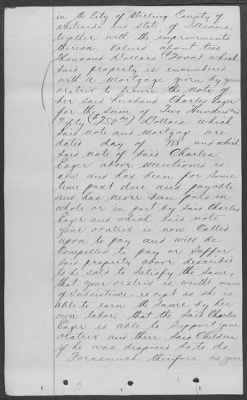 in the City of Sterling County of
Whiteside and State of Illinois
together with the improvements
thereon valued about two
thousand Dollars ($2000) which
said property is encumbered
with a Mortgage given by your
oratrix to secure the note of
her said husband Charles Eager
for the sum of Two Hundred &
Fifty ($250 00) Dollars which
said note and Mortgage are
dated day of 18 and which
said note of said Charles
Eager above mentioned is
now and has been for some
time past due and payable
and has never been paid in
whole or in part by said Charles
Eager and which said note
your oratrix is now Called
upon to pay and will be
Compelled to pay or Suffer
said property above described
to be sold to satisfy the same,
that your oratrix is without means
of Subsistence except as she is
able to earn the same by her
own labor that the said Charles
Eager is able to Support your
oratrix and their said Children
if he was disposed so to do
Forasmuch therefore as your